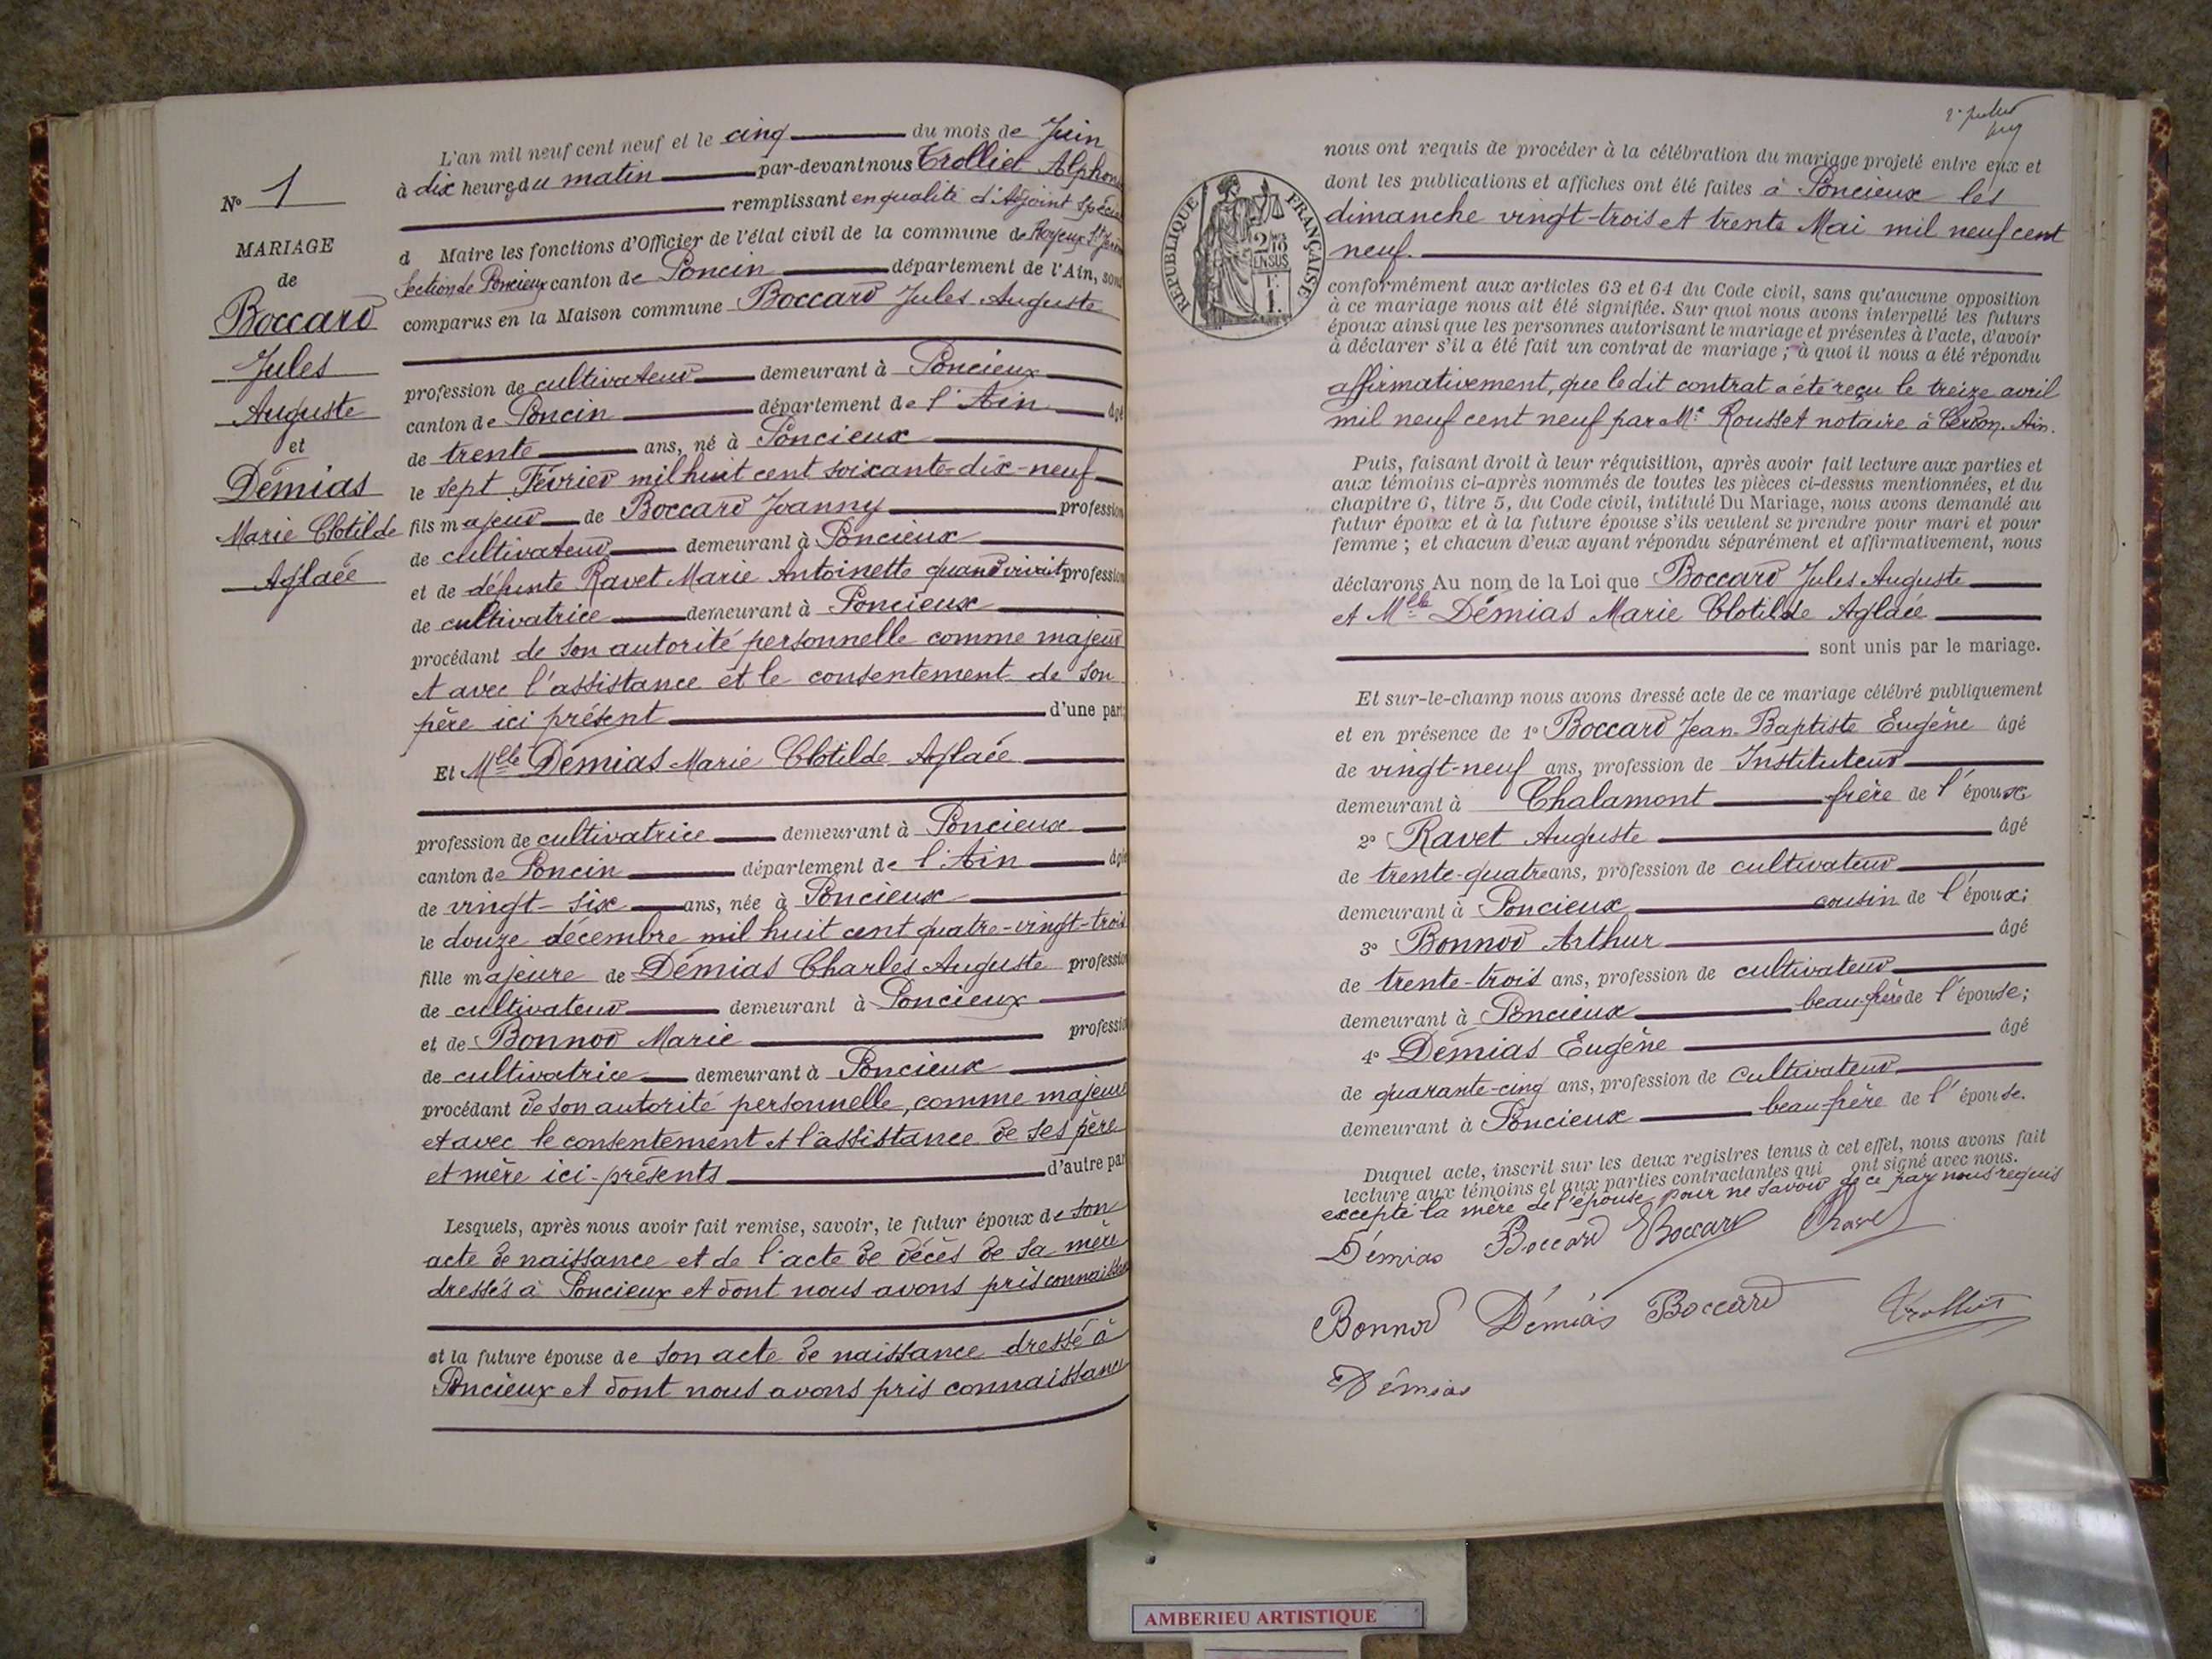 N° 1
MARIAGE
de
Boccard
Jules
Auguste
et
Démias
Marie Clotilde
Aglaée
L'an mil neuf cent neuf et le cinq du mois de Juin
à dix heures du matin par-devant nous Trolliet Alphon
remplissant en qualité d'Adjoint Spécial
d Maire les fonctions d'Officier de l'état civil de la commune de St Jérôme
Section de Poncieux canton de Poncin département de l'Ain, sont
comparus en la Maison commune Boccard Jules Auguste
profession de cultivateur demeurant à Poncieux
canton de Poncin département de l'Ain âgé
de trente ans, né à Poncieux
le sept Février mil huit cent soixante-dix-neuf
fils majeur de Boccard Joanny profession
de cultivateur demeurant à Poncieux
et de défunte Ravet Marie Antoinette quand vivait profession
de cultivatrice demeurant à Poncieux
procédant de son autorité personnelle comme majeur
et avec l'assistance et le consentement de son
père ici présent d'une part
Et Mlle Démias Marie Clotilde Aglaée
profession de cultivatrice demeurant à Poncieux
canton de Poncin département de l'Ain âgée
de vingt-six ans, née à Poncieux
le douze décembre mil huit cent quatre-vingt-trois
fille majeure de Démias Charles Auguste profession
de cultivateur demeurant à Poncieux
et de Bonnod Marie profession
de cultivatrice demeurant à Poncieux
procédant de son autorité personnelle, comme majeure
et avec le consentement et l'assistance de ses père
et mère ici-présents d'autre part
Lesquels, après nous avoir fait remise, savoir, le futur époux de son
acte de naissance et de l'acte de décès de sa mère
dressés à Poncieux et dont nous avons pris connaissance
et la future épouse de son acte de naissance dressé à
Poncieux et dont nous avons pris connaissance
RÉPUBLIQUE FRANÇAISE
2/10 EN SUS
1 F.
nous ont requis de procéder à la célébration du mariage projeté entre eux et
dont les publications et affiches ont été faites à Poncieux les
dimanche vingt-trois et trente Mai mil neuf cent
neuf.
conformément aux articles 63 et 64 du Code civil, sans qu'aucune opposition
à ce mariage nous ait été signifiée. Sur quoi nous avons interpellé les futurs
époux ainsi que les personnes autorisant le mariage et présentes à l'acte, d'avoir
à déclarer s'il a été fait un contrat de mariage ; à quoi il nous a été répondu
affirmativement, que ledit contrat a été reçu le treize avril
mil neuf cent neuf par Me Rousset notaire à Cerdon. Ain.
Puis, faisant droit à leur réquisition, après avoir fait lecture aux parties et
aux témoins ci-après nommés de toutes les pièces ci-dessus mentionnées, et du
chapitre 6, titre 5, du Code civil, intitulé Du Mariage, nous avons demandé au
futur époux et à la future épouse s'ils veulent se prendre pour mari et pour
femme ; et chacun d'eux ayant répondu séparément et affirmativement, nous
déclarons Au nom de la Loi que Boccard Jules Auguste
et Mlle Démias Marie Clotilde Aglaée
sont unis par le mariage.
Et sur-le-champ nous avons dressé acte de ce mariage célébré publiquement
et en présence de 1° Boccard Jean-Baptiste Eugène âgé
de vingt-neuf ans, profession de Instituteur
demeurant à Chalamont frère de l'épouse
2° Ravet Auguste âgé
de trente-quatre ans, profession de cultivateur
demeurant à Poncieux cousin de l'époux;
3° Bonnod Arthur âgé
de trente-trois ans, profession de cultivateur
demeurant à Poncieux beau-frère de l'épouse;
4° Démias Eugène âgé
de quarante-cinq ans, profession de cultivateur
demeurant à Poncieux beau-frère de l'épouse.
Duquel acte, inscrit sur les deux registres tenus à cet effet, nous avons fait
lecture aux témoins et aux parties contractantes qui ont signé avec nous.
excepté la mère de l'épouse, pour ne savoir de ce par nous requis
Démias Boccard EBoccard Ravet
Bonnod Démias Boccard Trolliet
Démias
AMBERIEU ARTISTIQUE